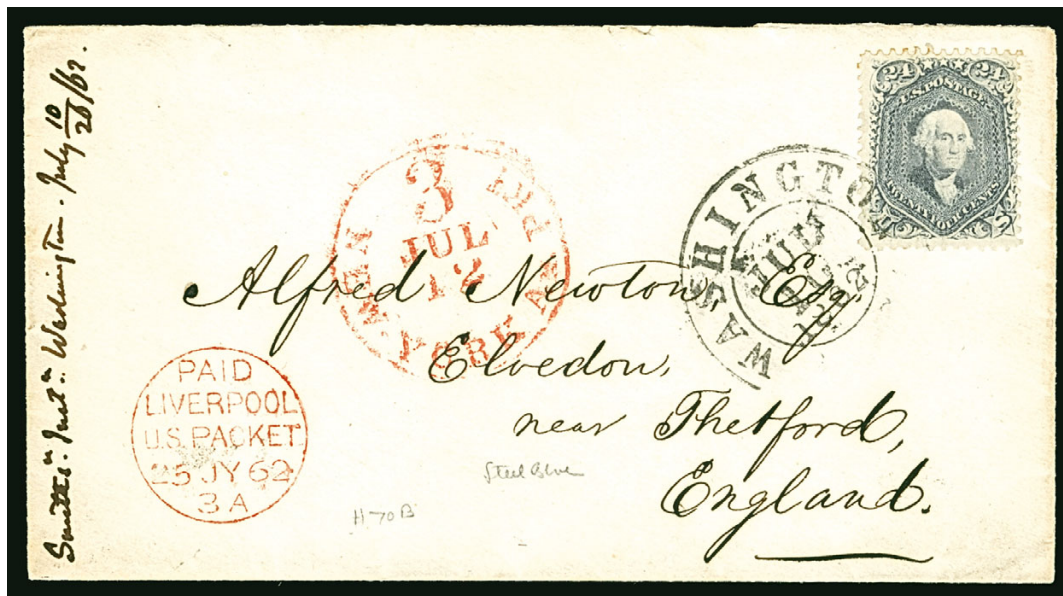 Smiths.ⁿ Instⁿ. Washington. July 10/28/62.
24 24
U.S. POSTAGE
TWENTY FOUR CENTS
U S
WASHINGTON
JUL
3
JUL
12
NEW YORK AM PKT
Alfred Newton, Esq.
Elvedon,
near Thetford,
England.
PAID
LIVERPOOL
U.S. PACKET
25 JY 62
3 A
Steel Blue
H 70 B